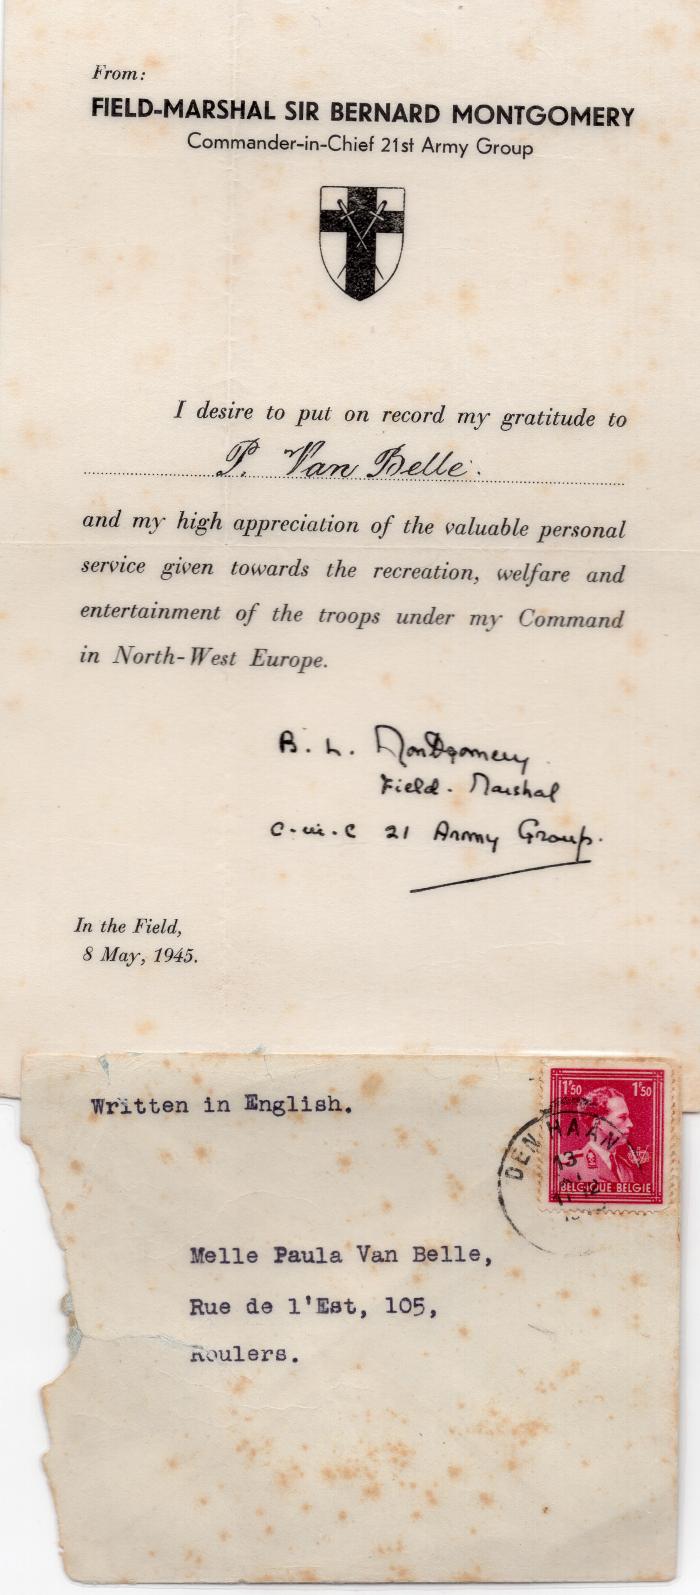 From:
FIELD-MARSHAL SIR BERNARD MONTGOMERY
Commander-in-Chief 21st Army Group
I desire to put on record my gratitude to
P. Van Belle.
and my high appreciation of the valuable personal
service given towards the recreation, welfare and
entertainment of the troops under my Command
in North-West Europe.
B. L. Montgomery
Field-Marshal
C-in-C 21 Army Group.
In the Field,
8 May, 1945.
Written in English.
1'50 1'50
DEN HAAN
13
BELGIQUE BELGIE
Melle Paula Van Belle,
Rue de l'Est, 105,
Roulers.